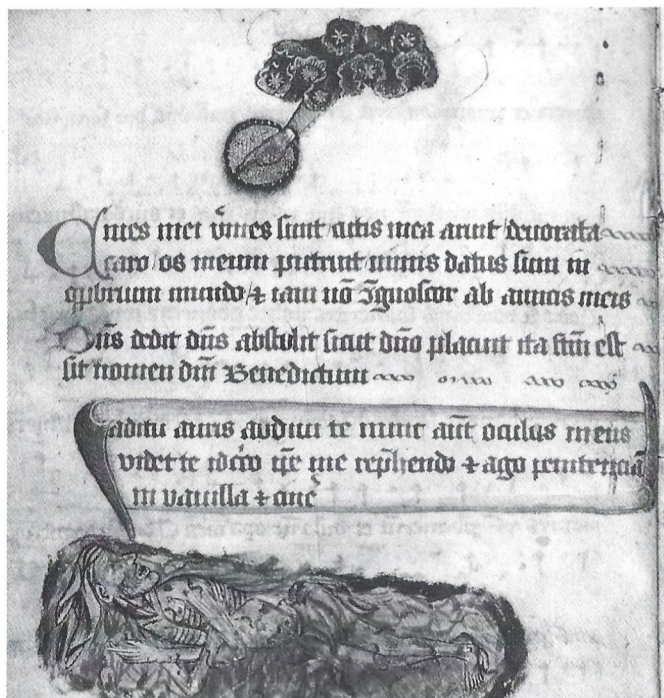 Omnes mei v̄mes sunt cutis mea aruit deuorata
caro / os meum putruit nimis datus sum in
opbrium mundo / ⁊ iam nō Ignoscor ab amicis meis
Dn̄s dedit dn̄s abstulit sicut dn̄o placuit ita fc̄m est
sit nomen dn̄i Benedictum
auditu auris audiui te nunc aūt oculus meus
videt te idcirco ip̄e me rep̄hendo ⁊ ago penitenciā
in vauilla ⁊ cinē